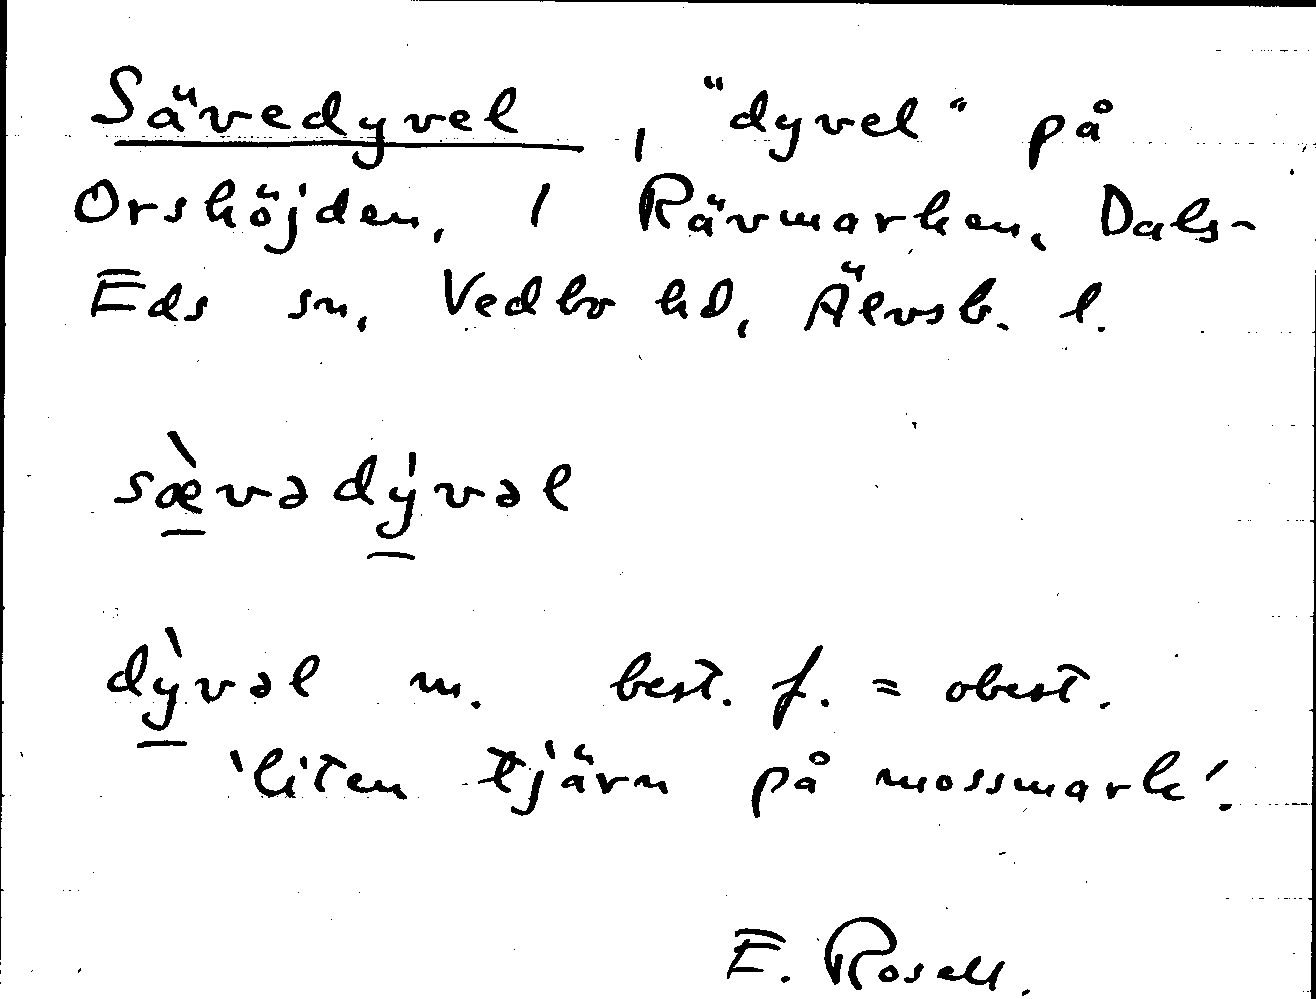 Sävedyvel, "dyvel" på
Orshöjden, 1 Rävmarken, Dals-
Eds sn, Vedbo hd, Älvsb. l.
sæ̀vədy̍vəl
dỳvəl m. best. f. = obest.
'liten tjärn på mossmark'.
E. Rosell.